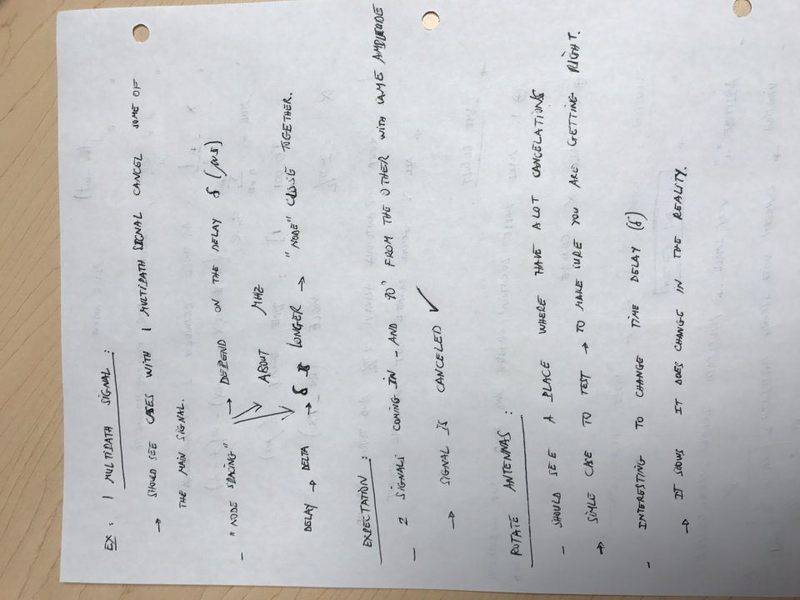 EX: 1 MULTIPATH SIGNAL:
→ SHOULD SEE CASES WITH 1 MULTIPATH SIGNAL CANCEL SOME OF
THE MAIN SIGNAL.
- "NODE SPACING" → DEPEND ON THE DELAY δ (μs)
ABOUT MHZ
DELAY → DELTA → δ IS LONGER → "NODE" CLOSE TOGETHER.
EXPECTATION:
- 2 SIGNALS COMING IN - AND 90° FROM THE OTHER WITH SAME AMPLITUDE
→ SIGNAL IS CANCELED ✓
ROTATE ANTENNAS:
- SHOULD SEE A PLACE WHERE HAVE A LOT CANCELATIONS
→ SIMLE CASE TO TEST → TO MAKE SURE YOU ARE GETTING RIGHT.
- INTERESTING TO CHANGE TIME DELAY (δ)
→ IT SHOWS IT DOES CHANGE IN THE REALITY.